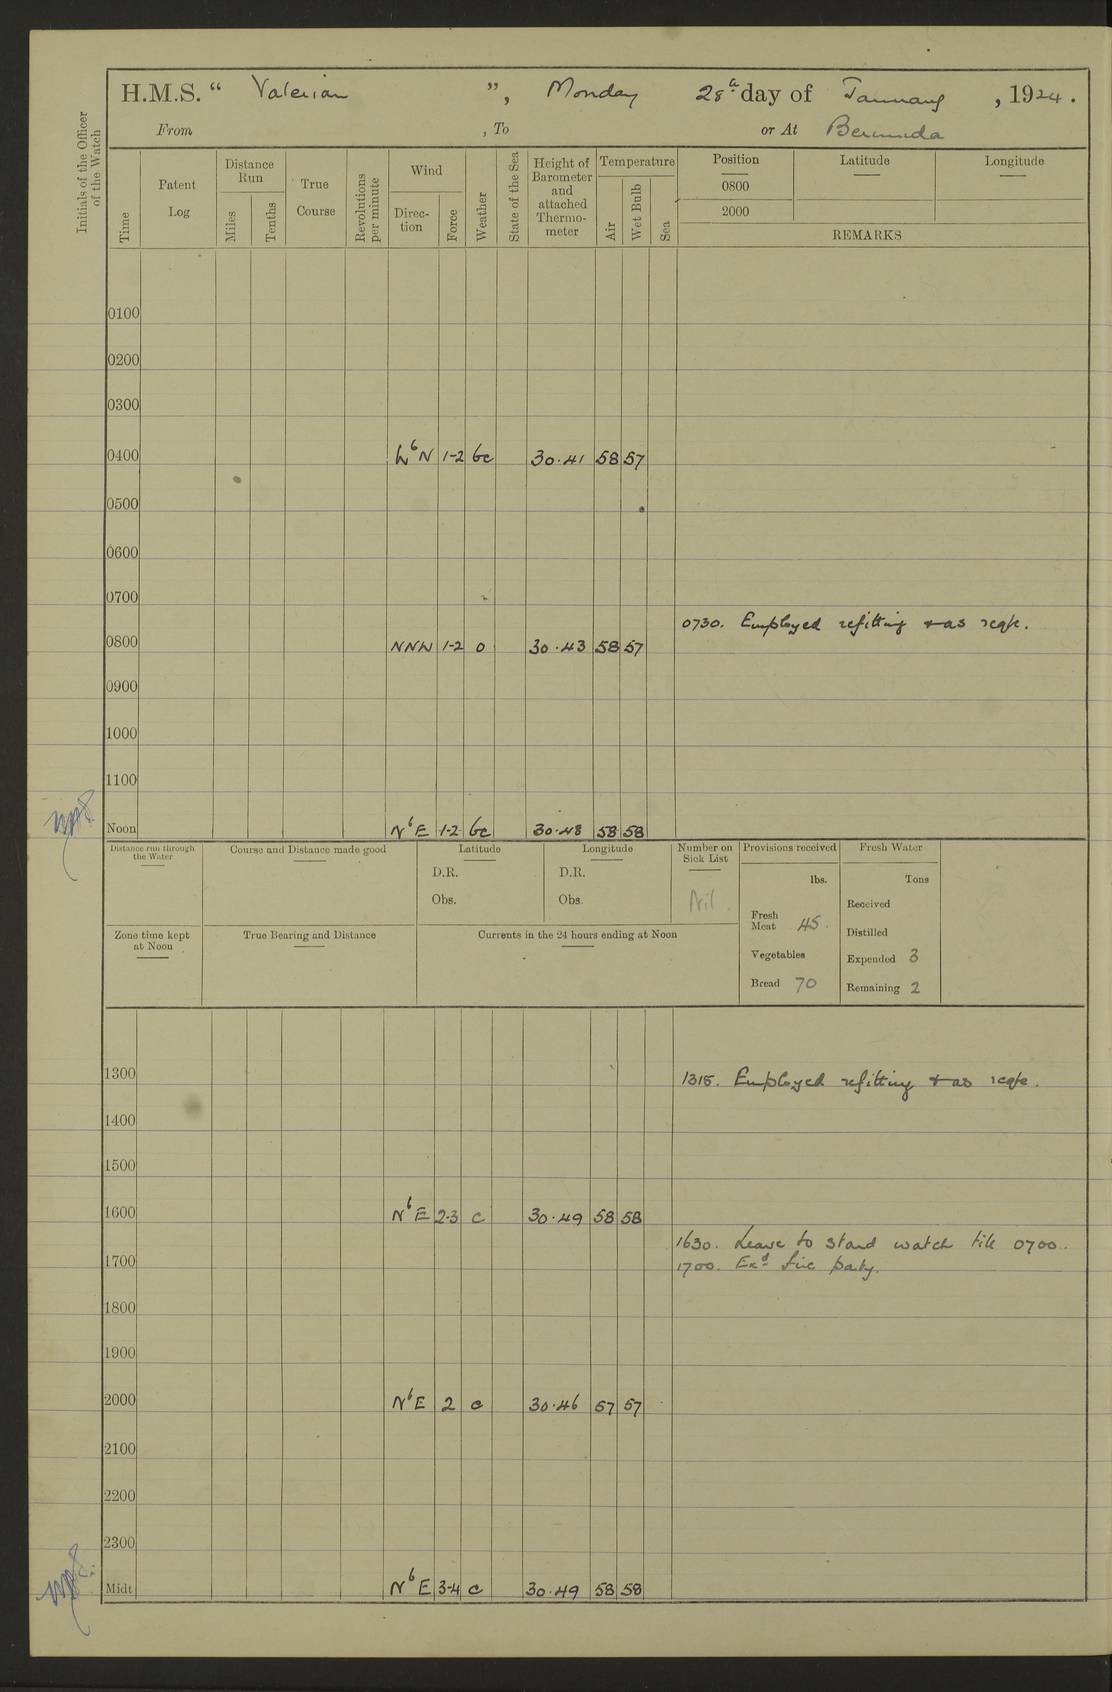 H.M.S. “ Valerian ”, Monday 28th day of January, 1924.
From , To or At Bermuda
Initials of the Officer of the Watch
Time
Patent Log
Distance Run
Miles
Tenths
True Course
Revolutions per minute
Wind
Direc-tion
Force
Weather
State of the Sea
Height of Barometer and attached Thermo-meter
Temperature
Air
Wet Bulb
Sea
Position Latitude Longitude
0800
2000
REMARKS
0100
0200
0300
0400 WbN 1-2 bc 30.41 58 57
0500
0600
0700
0730. Employed refitting & as reqte.
0800 NNW 1-2 o 30.43 58 57
0900
1000
1100
Noon NbE 1-2 bc 30.48 58 58
Distance run through the Water
Course and Distance made good
Latitude
D.R.
Obs.
Longitude
D.R.
Obs.
Number on Sick List
Nil
Provisions received
lbs.
Fresh Meat 45.
Vegetables
Bread 70
Fresh Water
Tons
Received
Distilled
Expended 3
Remaining 2
Zone time kept at Noon
True Bearing and Distance
Currents in the 24 hours ending at Noon
1300 1315. Employed refitting & as reqte.
1400
1500
1600 NbE 2-3 c 30.49 58 58
1630. Leave to stand watch till 0700.
1700 1700. Exd fire party.
1800
1900
2000 NbE 2 c 30.46 57 57
2100
2200
2300
Midt NbE 3-4 c 30.49 58 58